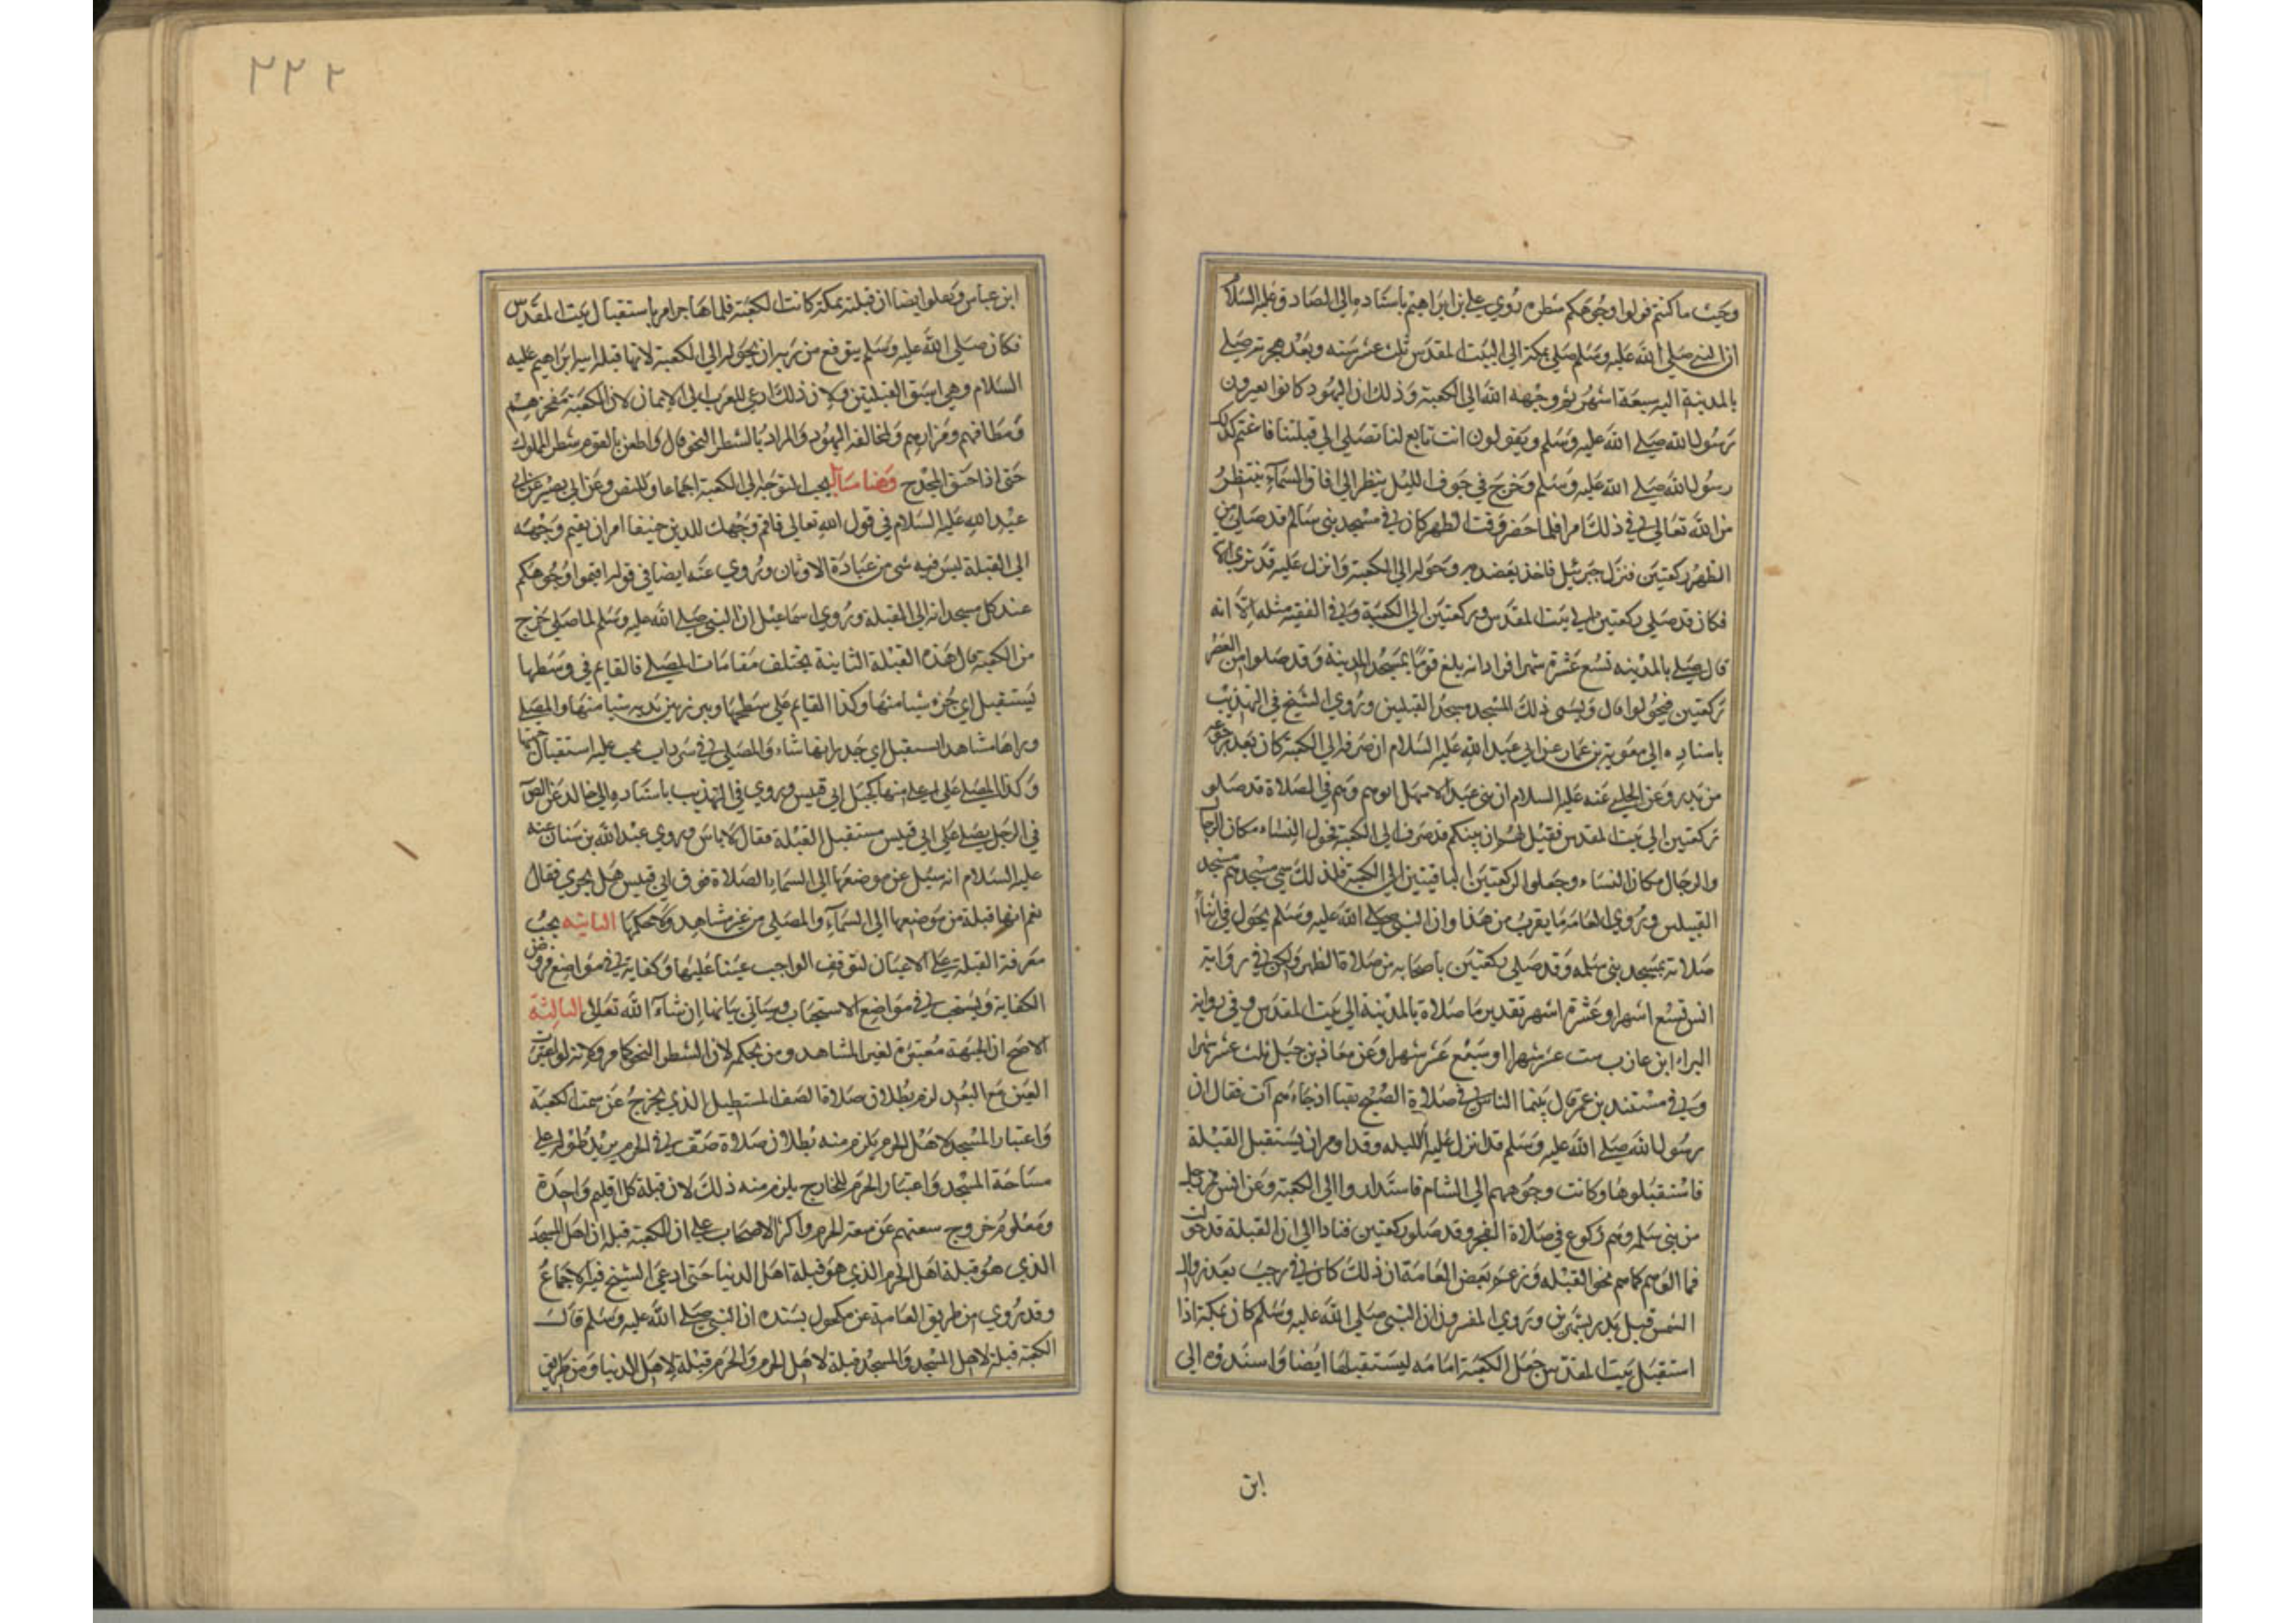 وحيث ما كنتم فولوا وجوهكم شطره روي علي بن ابراهيم باسناده الى الصادق عليه السلام
ان النبي صلى الله عليه وسلم صلى بمكة الى البيت المقدس ثلث عشر سنه وبعد هجرته صلى
بالمدينة اليه سبعة اشهر ثم وجهه الله الى الكعبة وذلك ان اليهود كانوا يعيرون
رسول الله صلى الله عليه وسلم ويقولون انت تابع لنا تصلي الى قبلتنا فاغتم لذلك
رسول الله صلى الله عليه وسلم وخرج في جوف الليل ينظر الى افاق السماء ينتظر
من الله تعالى في ذلك امرا فلما حضر وقت الظهر كان في مسجد بني سالم قد صلى من
الظهر ركعتين فنزل جبرئيل فاخذ بعضديه وحوله الى الكعبة وانزل عليه قد نرى الآية
فكان قد صلى ركعتين الى بيت المقدس وركعتين الى الكعبة وفي الفقيه مثله الا انه
قال صلى بالمدينه تسع عشرة شهرا فزاد انه بلغ قوما بمسجد المدينة وقد صلوا من العصر
ركعتين فحولوا قال ويسمى ذلك المسجد مسجد القبلتين وروى الشيخ في التهذيب
باسناده الى معوية بن عمار عن ابي عبد الله عليه السلام ان صرفه الى الكعبة كان بعد رجوعه
من بدر وعن الحلبي عنه عليه السلام ان بني عبد الاشهل اتوهم وهم في الصلاة قد صلوا
ركعتين الى بيت المقدس فقيل لهم ان نبيكم قد صرف الى الكعبة فحول النساء مكان الرجال
والرجال مكان النساء وجعلوا الركعتين الباقيتين الى الكعبة فلذلك سمي مسجدهم مسجد
القبلتين وروى العامة ما يقرب من هذا وان النبي صلى الله عليه وسلم يحول في اثناء
صلاته بمسجد بني سلمه وقد صلى ركعتين باصحابه من صلاة الظهر ولكن في رواية
انس تسع اشهر او عشرة اشهر تقدير ما صلاه بالمدينة الى بيت المقدس وفي رواية
البراء ابن عازب ست عشر شهرا او سبع عشر شهرا وعن معاذ بن جبل ثلث عشر شهرا
وفي مسند بن عمر قال بينما الناس في صلاة الصبح بقبا اذ جاءهم آت فقال ان
رسول الله صلى الله عليه وسلم قد انزل عليه الليله وقد امر ان يستقبل القبلة
فاستقبلوها وكانت وجوههم الى الشام فاستداروا الى الكعبة وعن انس فمر رجل
من بني سلمه وهم ركوع في صلاة الفجر وقد صلوا ركعتين فنادا الا ان القبلة قد حولت
فمالوا هم كما هم نحو القبله وزعم بعض العامة ان ذلك كان في رجب بعد زوال
الشمس قبل بدر بشهرين وروى المفسرون ان النبي صلى الله عليه وسلم كان بمكة اذا
استقبل بيت المقدس جعل الكعبة امامه ليستقبلها ايضا واسندوه الى
ابن
٢٢٢
ابن عباس ونقلوا ايضا ان قبلته بمكة كانت الكعبة فلما هاجر امر باستقبال بيت المقدس
فكان صلى الله عليه وسلم يتوقع من ربه ان يحوله الى الكعبة لانها قبلة ابيه ابراهيم عليه
السلام وهي اسبق القبلتين ولان ذلك ادعى للعرب الى الايمان لان الكعبة مفخرهم
ومطافهم ومزارهم ولمخالفه اليهود والمراد بالشطر النحو قال واطعن بالقوم شطر الملوك
حتى اذا خفق المجدح وهنا مسائل يجب التوجه الى الكعبة اجماعا وللنص وعن ابي بصير عن ابي
عبد الله عليه السلام في قول الله تعالى فاقم وجهك للدين حنيفا امر ان يقيم وجهه
الى القبلة ليس فيه شي من عبادة الاوثان وروي عنه ايضا في قوله اقيموا وجوهكم
عند كل مسجد انه الى القبلة وروى اسماعيل ان النبي صلى الله عليه وسلم لما صلى خرج
من الكعبة قال هذه القبلة الثانية يختلف مقامات المصلي فالقايم في وسطها
يستقبل اي جزء شيا منها وكذا القايم على سطحها ويبرز بين يديه شيا منها والمصلي
وراها مشاهدا يستقبل اي جدرانها شاء والمصلي في سرداب يجب عليه استقبال جهتها
وكذا المصلي على اعلى منها كجبل ابي قبيس وروي في التهذيب باسناده الى خالد عن الصادق
في الرجل يصلي على ابي قبيس مستقبل القبلة فقال لا باس وروى عبد الله بن سنان عنه
عليه السلام انه سئل عن موضعها الى السما بالصلاة فوق ابي قبيس هل يجزي فقال
نعم انها قبلة من موضعها الى السماء والمصلي من غير مشاهد ولا حكمها الثانيه يجب
معرفة القبلة على الاعيان لتوقف الواجب عينا عليها وكفاية في مواضع فروض
الكفاية ويستحب في مواضع الاستحباب وسياتي بيانها ان شاء الله تعالى الثالثة
الاصح ان الجهة معتبرة لغير المشاهد ومن بحكمه لان الشطر النحو كما مر ولانه لو اعتبرت
العين مع البعد لزم بطلان صلاة الصف المستطيل الذي يخرج عن سمت الكعبة
واعتبار المسجد لاهل الحرم يلزم منه بطلان صلاة صف في الحرم يزيد طوله على
مساحة المسجد واعتبار الحرم للخارج يلزم منه ذلك لان قبلة كل اقليم واحدة
ومعلوم خروج سعتهم عن سعة الحرم واكثر الاصحاب على ان الكعبة قبلة اهل المسجد
الذي هو قبلة اهل الحرم الذي هو قبلة اهل الدنيا حتى ادعى الشيخ فيه الاجماع
وقد روي من طريق العامة عن مكحول بسنده ان النبي صلى الله عليه وسلم قال
الكعبة قبلة لاهل المسجد والمسجد قبلة لاهل الحرم والحرم قبلة لاهل الدنيا ومن طريق